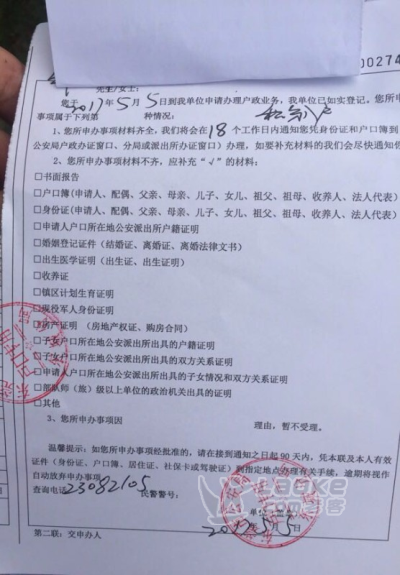 00274
先生/女士:
您于2017年5月5日到我单位申请办理户政业务，我单位已如实登记。您所申
事项属于下列第 种情况:
1、您所申办事项材料齐全，我们将会在18个工作日内通知您凭身份证和户口簿到
公安局户政办证窗口、分局或派出所办证窗口）办理，如要补充材料的我们会尽快通知您
2、您所申办事项材料不齐，应补充“√”的材料:
□书面报告
□户口簿(申请人、配偶、父亲、母亲、儿子、女儿、祖父、祖母、收养人、法人代表）
□身份证(申请人、配偶、父亲、母亲、儿子、女儿、祖父、祖母、收养人、法人代表）
□申请人户口所在地公安派出所户籍证明
□婚姻登记证件（结婚证、离婚证、离婚法律文书)
□出生医学证明（出生证、出生证明）
□收养证
□镇区计划生育证明
□现役军人身份证明
□房产证明（房地产权证、购房合同）
□子女户口所在地公安派出所出具的户籍证明
□子女户口所在地公安派出所出具的双方关系证明
□申请人户口所在地公安派出所出具的子女情况和双方关系证明
□部队师（旅）级以上单位的政治机关出具的证明
□其他
3、您所申办事项因 理由，暂不受理。
温馨提示：如您所申办事项经批准的，请在接到通知之日起90天内，凭本联及本人有效
证件（身份证、户口簿、居住证、社保卡或驾驶证）到指定地点办理有关手续，逾期将视作
自动放弃申办事项。
查询电话:23082105 民警警号:
单位
2017年5月5日
第二联：交申办人